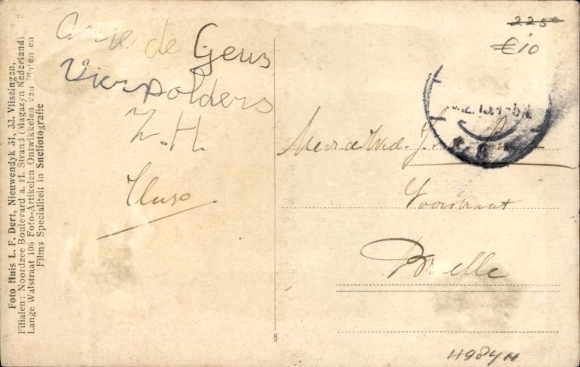 Foto Huis L. F. Dert, Nieuwendyk 31, 33, Vlissingen,
Filialen: Noordzee Boulevard a. H. Strand (Magazyn Nederland)
Lange Walstraat 106 Foto-Artikelen Ontwikkelen van Platen en
Films Specialiteit in Snelfotografie
de Geus
Vierpolders
Z.H.
2250
€10
Mevr de Wed. J.
Voorstraat
Brielle
§
H984N